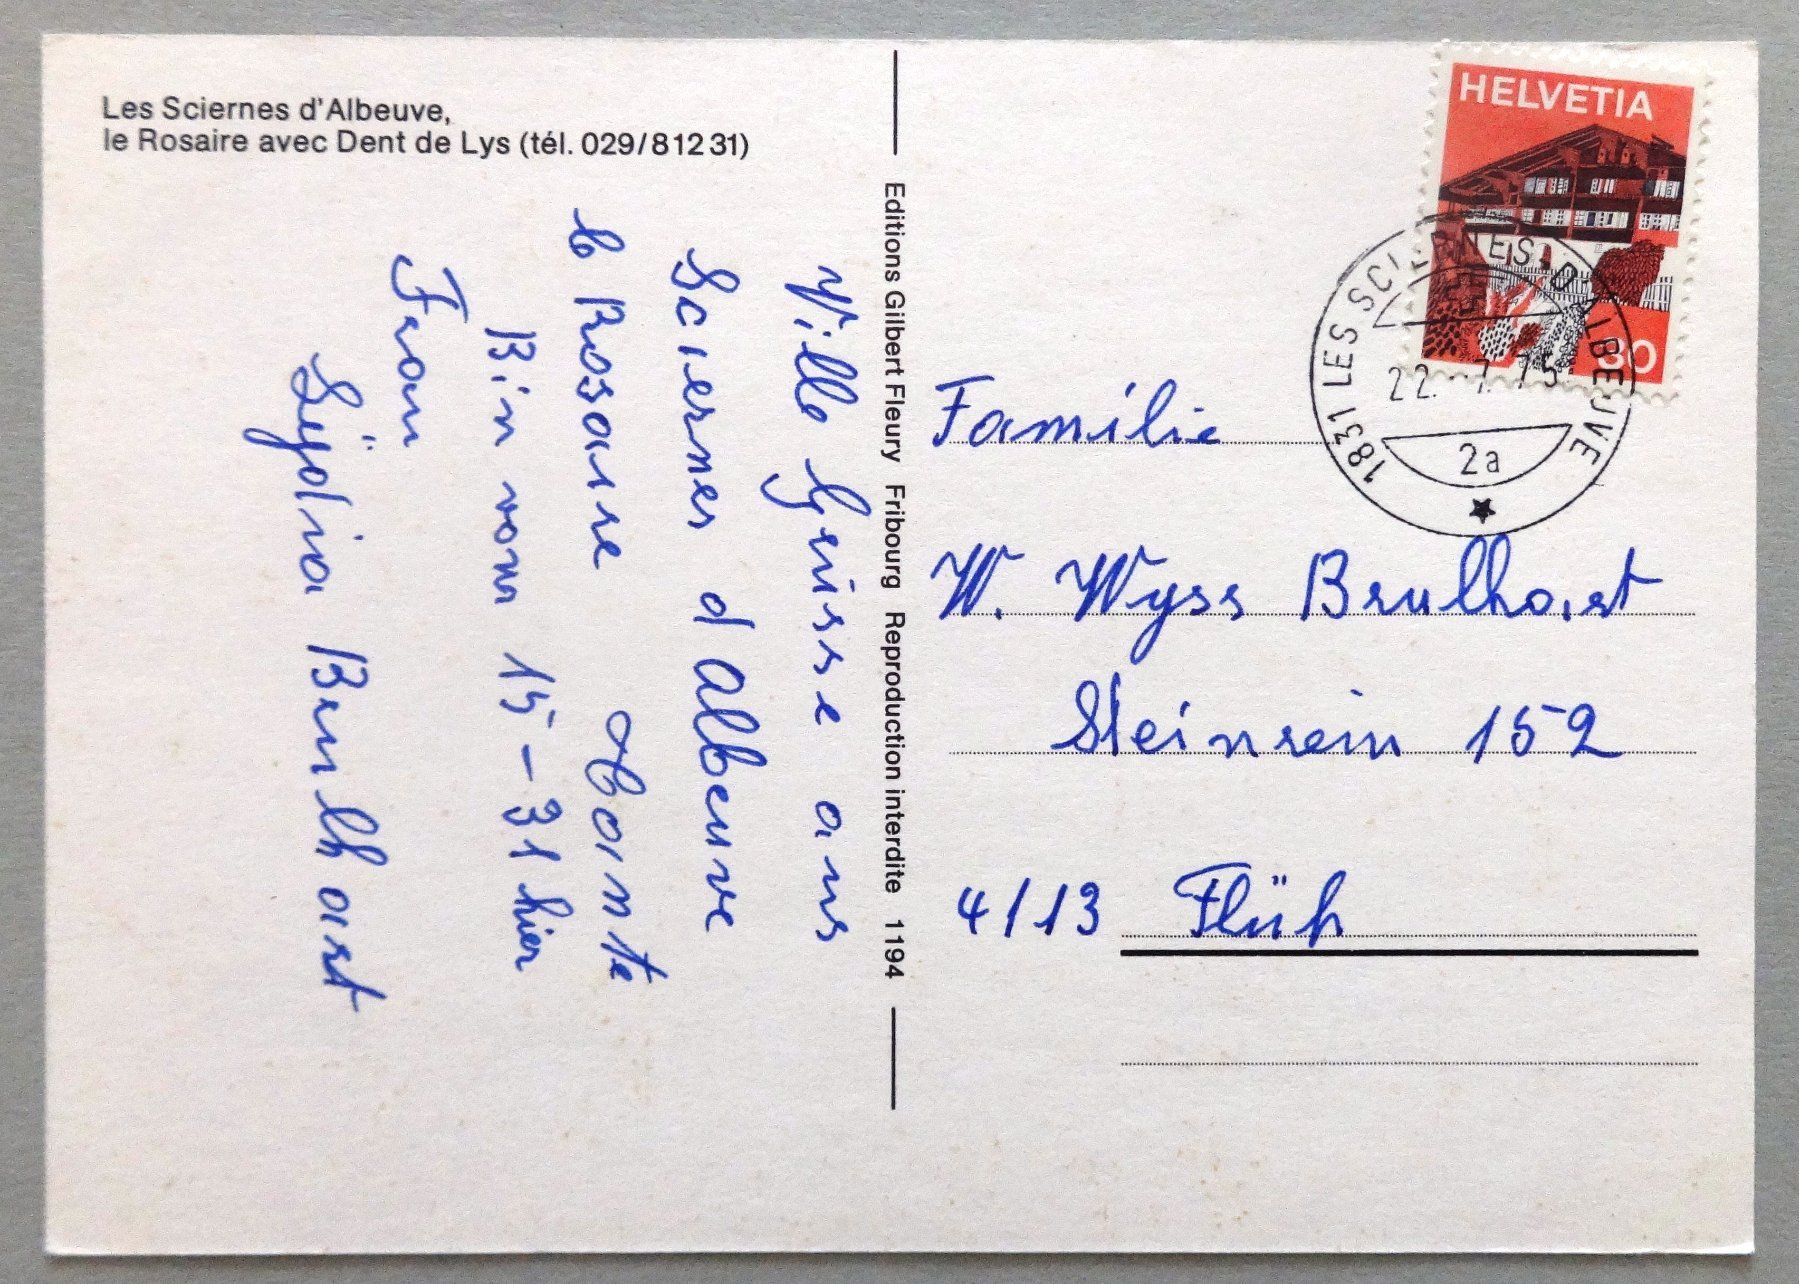 Les Sciernes d'Albeuve,
le Rosaire avec Dent de Lys (tél. 029/81231)
Editions Gilbert Fleury Fribourg Reproduction interdite 1194
HELVETIA
30
1831 LES SCIERNES-D'ALBEUVE
22.-7.75
2a
Ville Grüsse aus
Sciernes d Albeuve
le Rosaire
Bin vom 15-31 hier
Frau
Brulhart
Familie
W. Wyss Brulhart
Steinrein 152
4113 Flüh